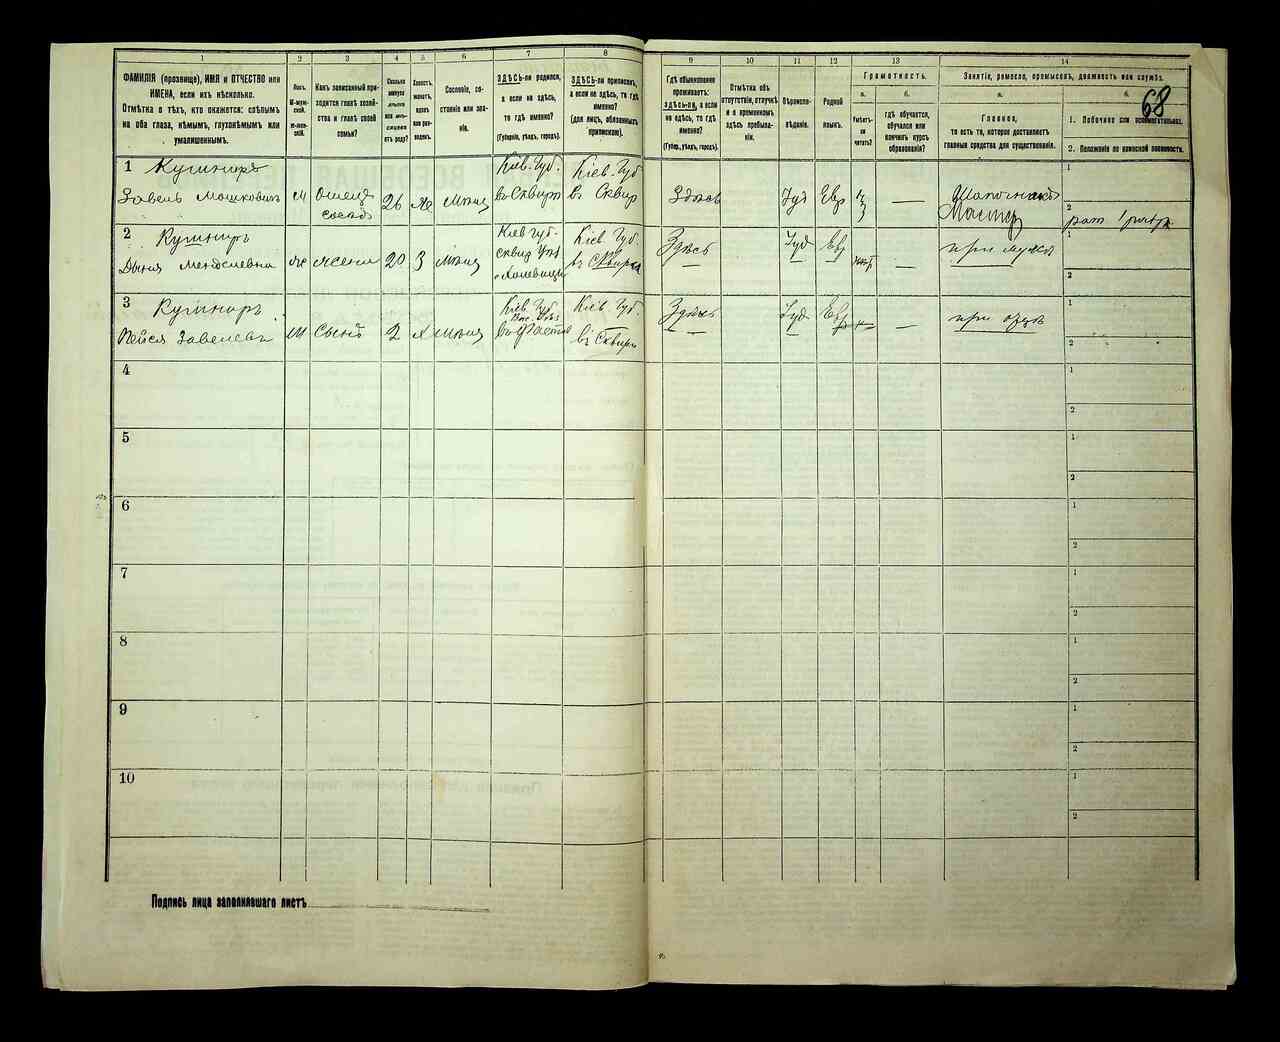 1 2 3 4 5 6 7 8 9 10 11 12 13 14
ФАМИЛІЯ (прозвище), ИМЯ и ОТЧЕСТВО или
ИМЕНА, если ихъ нѣсколько.
Отмѣтка о тѣхъ, кто окажется: слѣпымъ
на оба глаза, нѣмымъ, глухонѣмымъ или
умалишеннымъ.
Полъ.
М-муж-
ской.
Ж-жен-
скій.
Какъ записанный при-
ходится главѣ хозяй-
ства и главѣ своей
семьи?
Сколько
минуло
лѣтъ
или мѣ-
сяцевъ
отъ роду?
Холостъ,
женатъ,
вдовъ
или раз-
веденъ.
Сословіе, со-
стояніе или зва-
ніе.
ЗДѢСЬ-ли родился,
а если не здѣсь,
то гдѣ именно?
(Губернія, уѣздъ, городъ).
ЗДѢСЬ-ли приписанъ,
а если не здѣсь, то гдѣ
именно?
(для лицъ, обязанныхъ
припискою).
Гдѣ обыкновенно
проживаетъ:
здѣсь-ли, а если
не здѣсь, то гдѣ
именно?
(Губер., уѣздъ, городъ).
Отмѣтка объ
отсутствіи, отлучкѣ
и о временномъ
здѣсь пребыва-
ніи.
Вѣроиспо-
вѣданіе.
Родной
языкъ.
Грамотность.
а.
Умѣетъ-
ли
читать?
б.
гдѣ обучается,
обучался или
кончилъ курсъ
образованія?
Занятіе, ремесло, промыселъ, должность или служба.
а.
Главное,
то есть то, которое доставляетъ
главныя средства для существованія.
б.
68
1. Побочное или вспомогательное.
2. Положеніе по воинской повинности.
1 Кушниръ
Завель Мошковичъ м 26 же Мѣщ
Кіев. Губ.
въ Сквирѣ
Кіев. Губ
въ Сквир
Здѣсь Іуд Евр —
1
2
2 Кушниръ
Мендслевна же жена 20 З Мѣщ
Кіев губ.
сквир
Кіев. Губ
въ Сквирѣ
Здѣсь Іуд Евр — при мужѣ
1
2
3 Кушниръ
Пейся Завелевъ м Сынъ 2 Х Мѣщ
Кіев. Губ
Вас.
въ Фастов
Кіев Губ.
въ Сквирѣ
Здѣсь Іуд Евр — при отцѣ
1
2
4
1
2
5
1
2
6
1
2
7
1
2
8
1
2
9
1
2
10
1
2
Подпись лица заполнявшаго листъ